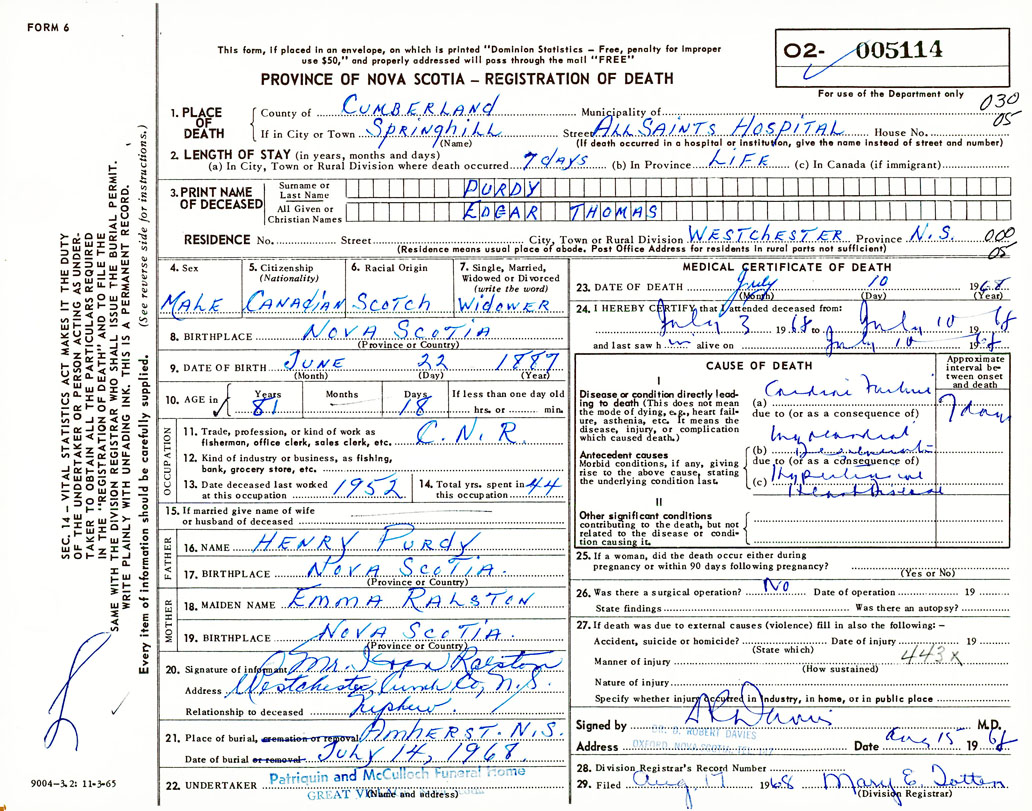 FORM 6
This form, if placed in an envelope, on which is printed "Dominion Statistics – Free, penalty for improper
use $50," and properly addressed will pass through the mail "FREE"
PROVINCE OF NOVA SCOTIA – REGISTRATION OF DEATH
02- 005114
For use of the Department only
030
05
1. PLACE OF DEATH
County of CUMBERLAND Municipality of
If in City or Town SPRINGHILL Street ALL SAINTS HOSPITAL House No.
(Name) (If death occurred in a hospital or institution, give the name instead of street and number)
2. LENGTH OF STAY (in years, months and days)
(a) In City, Town or Rural Division where death occurred 7 days (b) In Province LIFE (c) In Canada (if immigrant)
3. PRINT NAME OF DECEASED
Surname or Last Name PURDY
All Given or Christian Names EDGAR THOMAS
RESIDENCE No. Street City, Town or Rural Division WESTCHESTER Province N.S. 000
(Residence means usual place of abode. Post Office Address for residents in rural parts not sufficient) 05
4. Sex MALE
5. Citizenship (Nationality) CANADIAN
6. Racial Origin SCOTCH
7. Single, Married, Widowed or Divorced (write the word) WIDOWER
8. BIRTHPLACE NOVA SCOTIA
(Province or Country)
9. DATE OF BIRTH JUNE 22 1887
(Month) (Day) (Year)
10. AGE in Years 81 Months Days 18 If less than one day old hrs. or min.
OCCUPATION
11. Trade, profession, or kind of work as fisherman, office clerk, sales clerk, etc. C.N.R.
12. Kind of industry or business, as fishing, bank, grocery store, etc.
13. Date deceased last worked at this occupation 1952
14. Total yrs. spent in this occupation 44
15. If married give name of wife or husband of deceased
FATHER
16. NAME HENRY PURDY
17. BIRTHPLACE NOVA SCOTIA.
(Province or Country)
MOTHER
18. MAIDEN NAME EMMA RALSTON
19. BIRTHPLACE NOVA SCOTIA.
(Province or Country)
20. Signature of informant Mr. Ralston
Address Westchester Cumb Co, N.S.
Relationship to deceased Nephew.
21. Place of burial, cremation or removal AMHERST. N.S.
Date of burial or removal JULY 14, 1968
22. UNDERTAKER Patriquin and McCulloch Funeral Home
(Name and address) GREAT
MEDICAL CERTIFICATE OF DEATH
23. DATE OF DEATH July 10 1968
(Month) (Day) (Year)
24. I HEREBY CERTIFY that I attended deceased from:
July 3 1968 to July 10 1968
and last saw h im alive on July 10 1968
CAUSE OF DEATH
Approximate interval between onset and death
I
Disease or condition directly leading to death (This does not mean the mode of dying, e.g., heart failure, asthenia, etc. It means the disease, injury, or complication which caused death.)
(a) Cardiac Failure 7 days
due to (or as a consequence of)
Antecedent causes
Morbid conditions, if any, giving rise to the above cause, stating the underlying condition last.
(b) Myocardial Degeneration
due to (or as a consequence of)
(c) Heart Disease
II
Other significant conditions contributing to the death, but not related to the disease or condition causing it.
25. If a woman, did the death occur either during pregnancy or within 90 days following pregnancy?
(Yes or No)
26. Was there a surgical operation? No Date of operation 19
State findings Was there an autopsy?
27. If death was due to external causes (violence) fill in also the following: –
Accident, suicide or homicide? Date of injury 19
(State which) 443X
Manner of injury
(How sustained)
Nature of injury
Specify whether injury occurred in Industry, in home, or in public place
Signed by Davies M.D.
DR. D. ROBERT DAVIES
Address OXFORD, NOVA SCOTIA Date Aug 15 1968
28. Division Registrar's Record Number
29. Filed Aug 17 1968 Mary E. Totten
(Division Registrar)
SEC. 14 – VITAL STATISTICS ACT MAKES IT THE DUTY
OF THE UNDERTAKER OR PERSON ACTING AS UNDER-
TAKER TO OBTAIN ALL THE PARTICULARS REQUIRED
IN THE "REGISTRATION OF DEATH" AND TO FILE THE
SAME WITH THE DIVISION REGISTRAR WHO SHALL ISSUE THE BURIAL PERMIT.
WRITE PLAINLY WITH UNFADING INK. THIS IS A PERMANENT RECORD.
Every item of information should be carefully supplied. (See reverse side for instructions.)
9004–3.2: 11-3-65